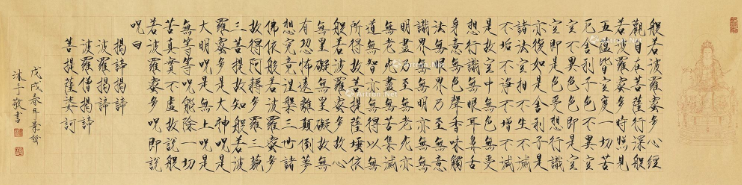 般若波羅蜜多心經
觀自在菩薩行深般
若波羅蜜多時照見
五蘊皆空度一切苦
厄舍利子色不異空
空不異色色即是空
空即是色受想行識
亦復如是舍利子是
諸法空相不生不滅
不垢不淨不增不減
是故空中無色無受
想行識無眼耳鼻舌
身意無色聲香味觸
法無眼界乃至無意
識界無無明亦無無
明盡乃至無老死亦
無老死盡無苦集滅
道無智亦無得以無
所得故菩提薩埵依
般若波羅蜜多故心
無罣礙無罣礙故無
有恐怖遠離顛倒夢
想究竟涅槃三世諸
佛依般若波羅蜜多
故得阿耨多羅三藐
三菩提故知般若波
羅蜜多是大神呪是
大明呪是無上呪是
無等等呪能除一切
苦真實不虛故說般
若波羅蜜多呪即說
呪曰
揭諦揭諦
波羅揭諦
波羅僧揭諦
菩提薩婆訶
戊戌春
沐手敬書